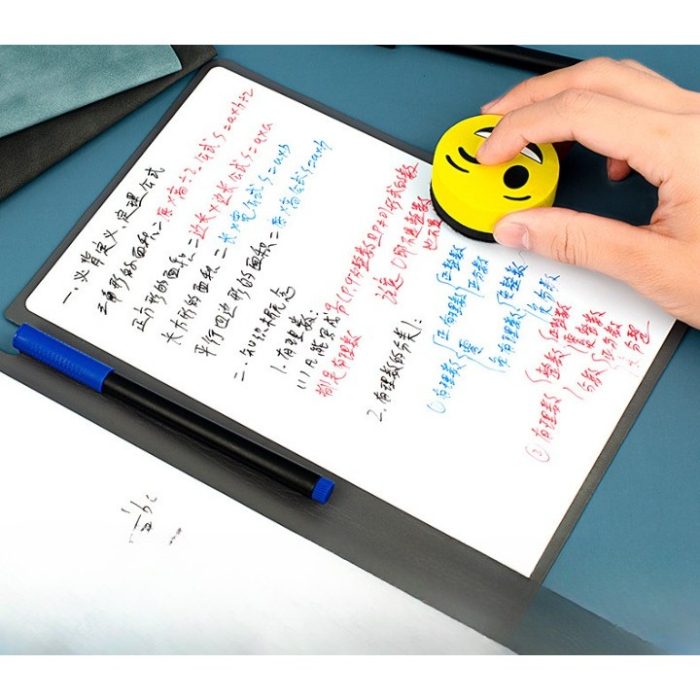 一. 必背定义、定理公式
三角形的面积 = 底×高÷2. 公式 S=a×h÷2
正方形的面积 = 边长×边长 公式 S=a×a
长方形的面积 = 长×宽 公式 S=a×b
平行四边形的面积 = 底×高 公式 S=a×h
二. 知识点概念
1. 有理数:
(1) 凡能写成 形式的数
都是有理数
注意: 0即不是正数 也不是
2. 有理数的分类:
① 有理数 正有理数 正整数 正分数
零
负有理数 负整数 负分数
② 有理数 整数 正整数 零 负整数
分数 正分数 负分数